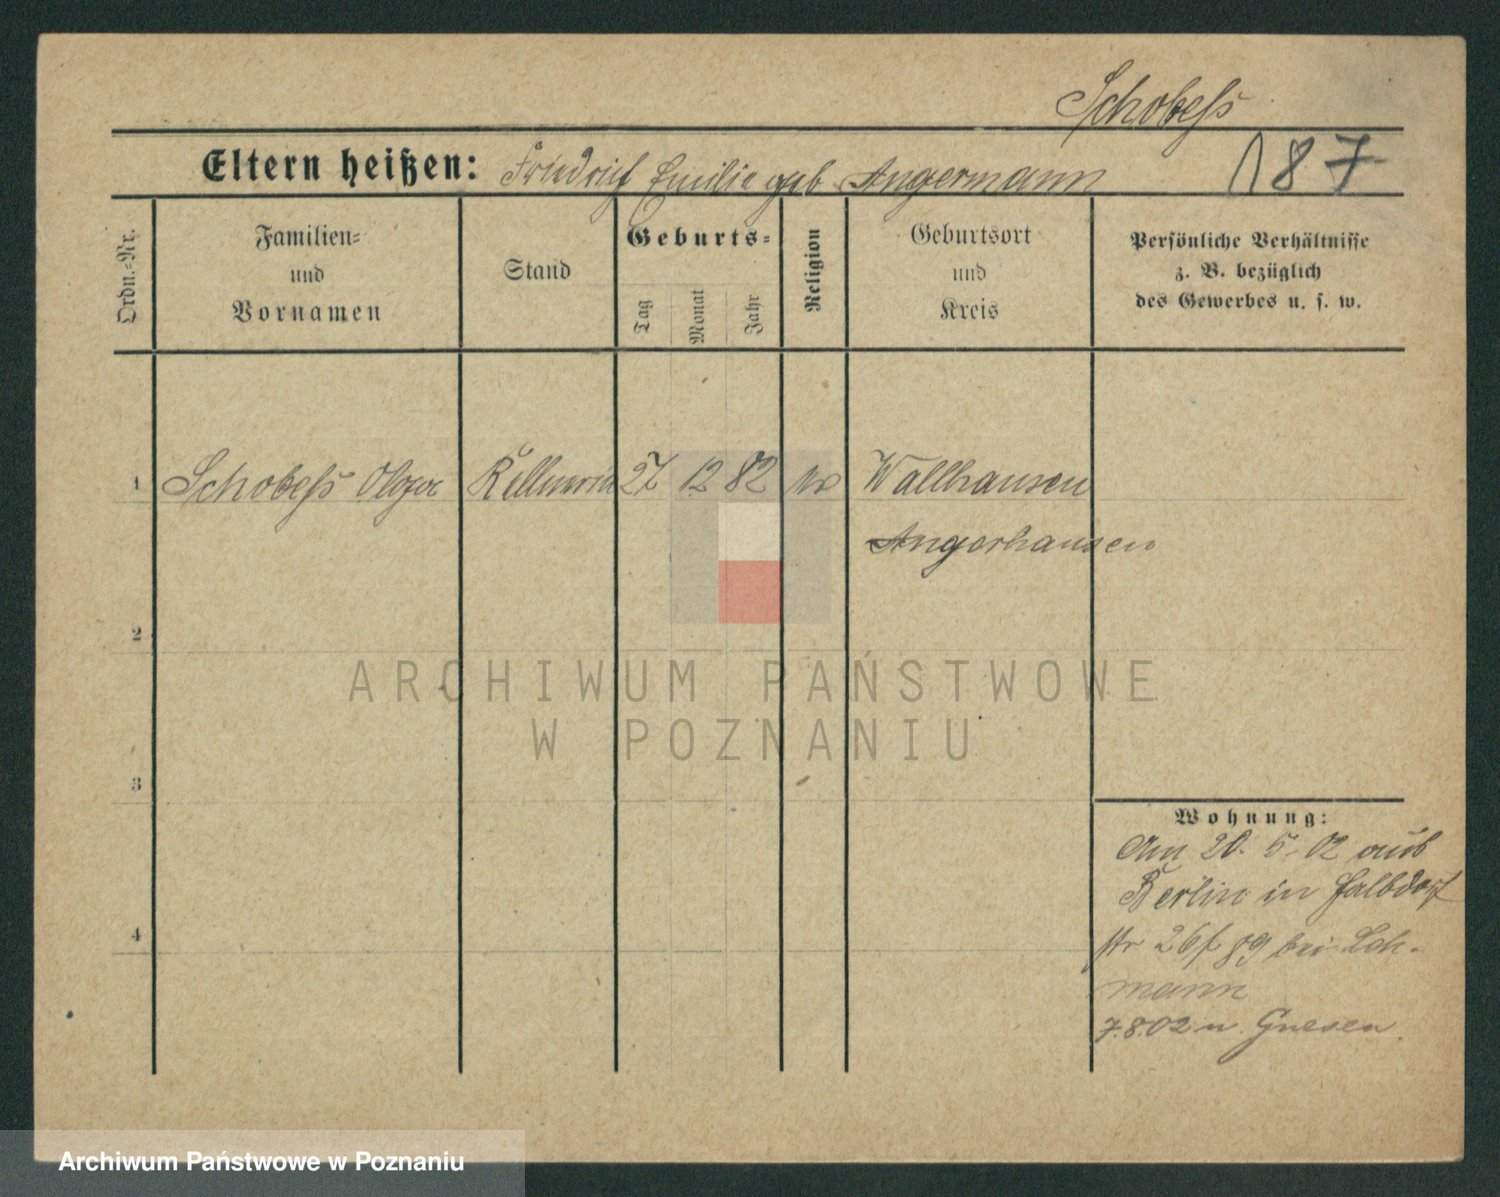 Schobeß
Eltern heißen: Friedrich Emilie geb Angermann
187
Ordn.-Nr.
Familien-
und
Vornamen
Stand
Geburts-
Tag
Monat
Jahr
Religion
Geburtsort
und
Kreis
Persönliche Verhältnisse
z. B. bezüglich
des Gewerbes u. s. w.
1 Schobeß Olga Kellnerin 27 12 82 Wallhausen
Angerhausen
2
ARCHIWUM PAŃSTWOWE
W POZNANIU
3
Wohnung:
Am 20. 5. 02 aus
Berlin in Halbdorf
str 26 bei Leh-
mann
7.8.02 n. Gnesen.
4
Archiwum Państwowe w Poznaniu